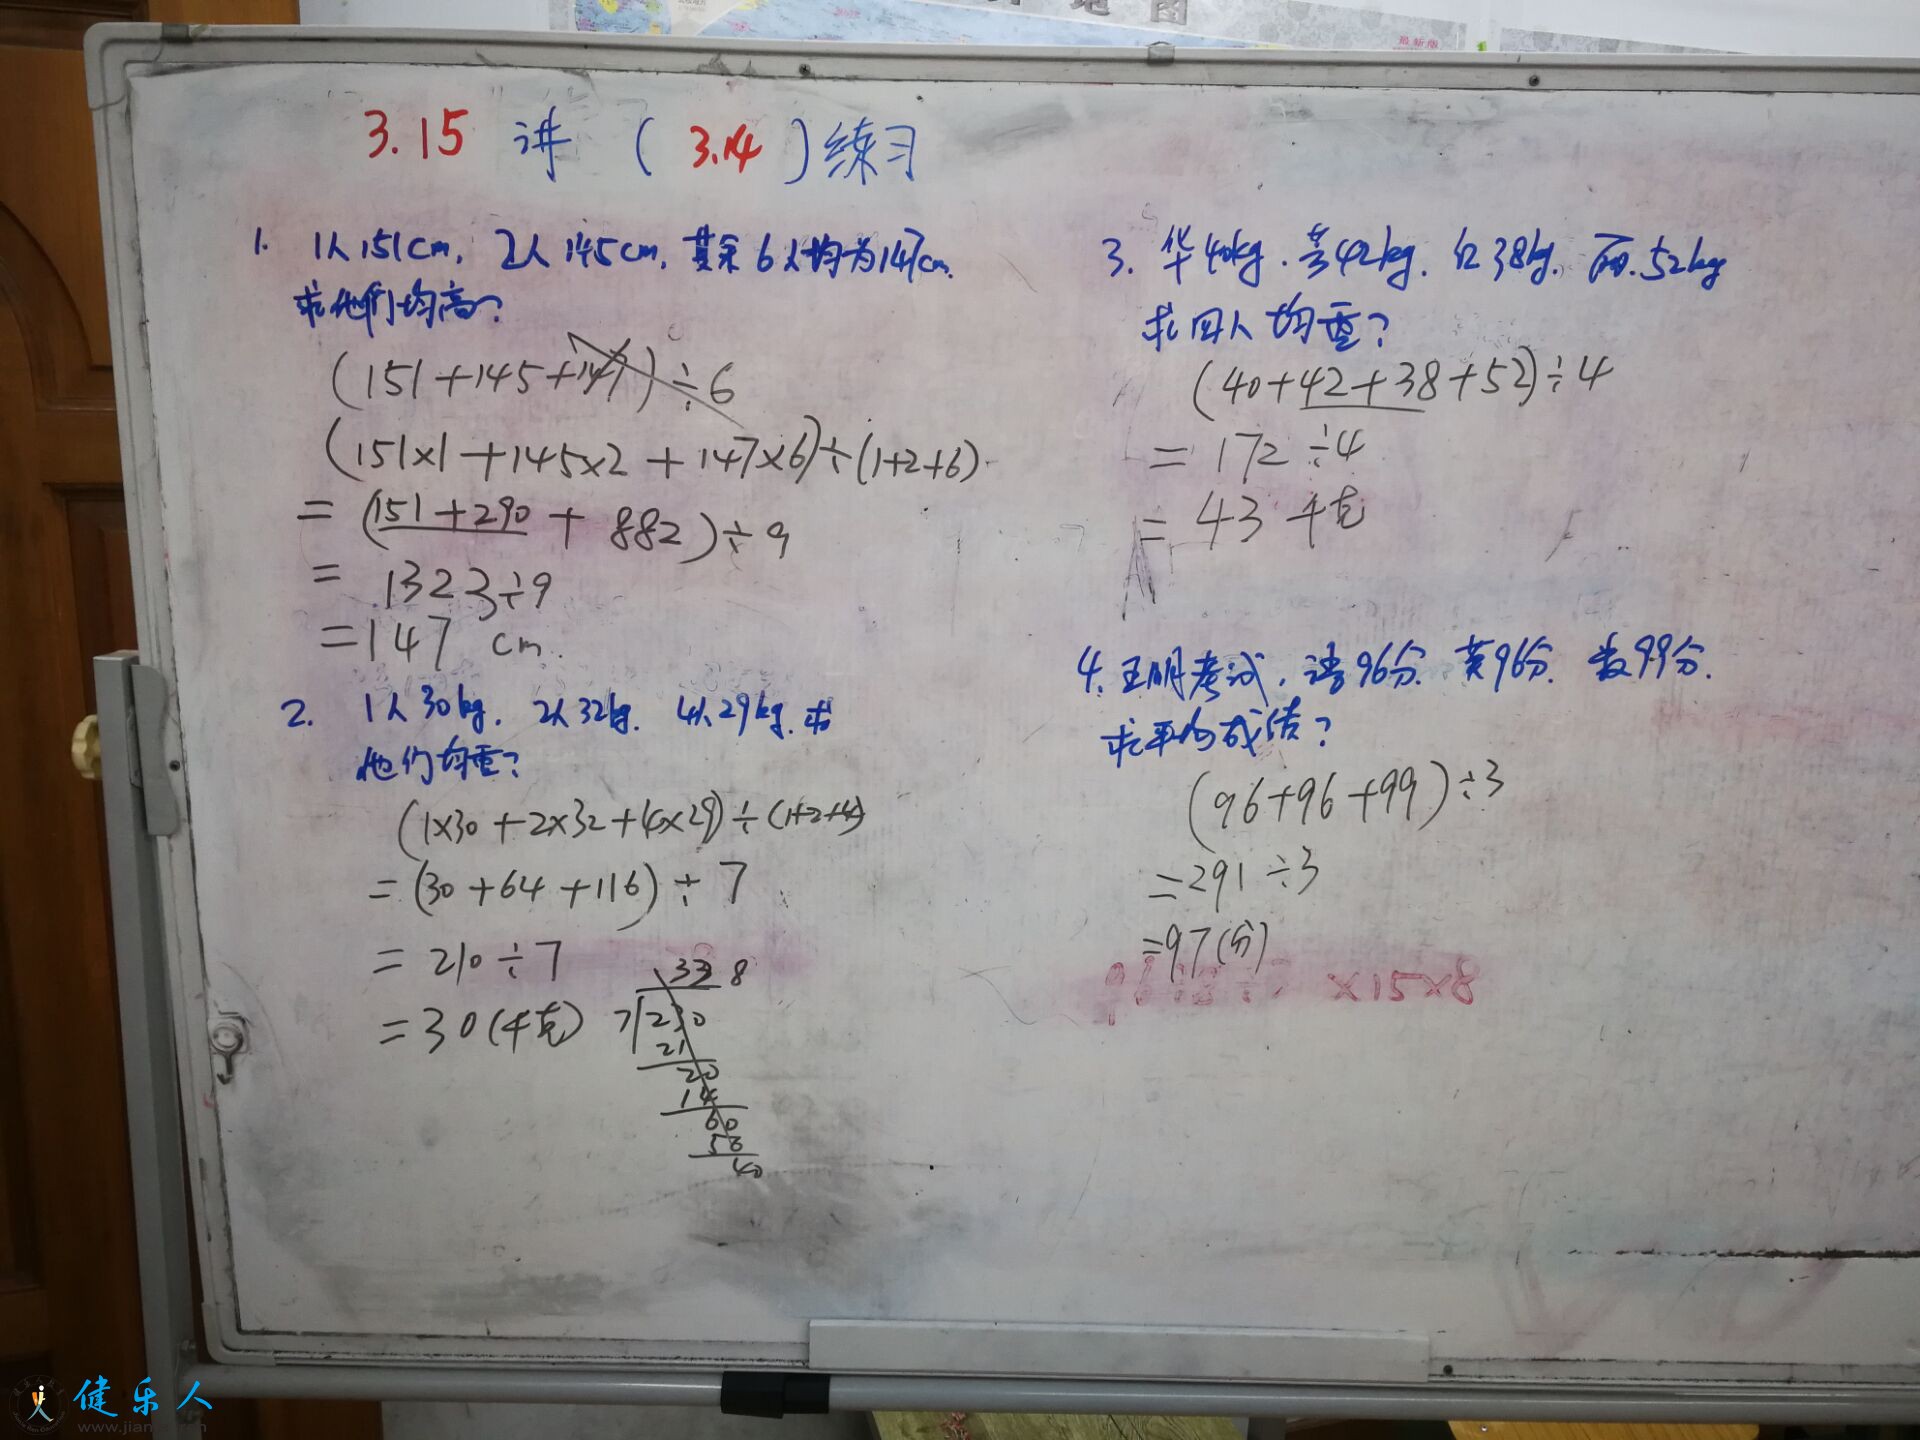 地图
最新版
3.15 讲 (3.14) 练习
1. 1人151cm, 2人145cm, 其余6人均为147cm.
求他们均高?
(151+145+147)÷6
(151×1+145×2+147×6)÷(1+2+6)
=(151+290+882)÷9
=1323÷9
=147 cm.
2. 1人30kg, 2人32kg, 4人29kg, 求
他们均重?
(1×30+2×32+4×29)÷(1+2+4)
=(30+64+116)÷7
=210÷7
=30(千克)
33 8
7 230
21
20
14
60
56
40
3. 华40kg. 芳42kg. 红38kg. 丽.52kg
求四人均重?
(40+42+38+52)÷4
=172÷4
=43 千克
4. 王明考试, 语96分. 英96分. 数99分.
求平均成绩?
(96+96+99)÷3
=291÷3
=97(分)
×15×8
健乐人